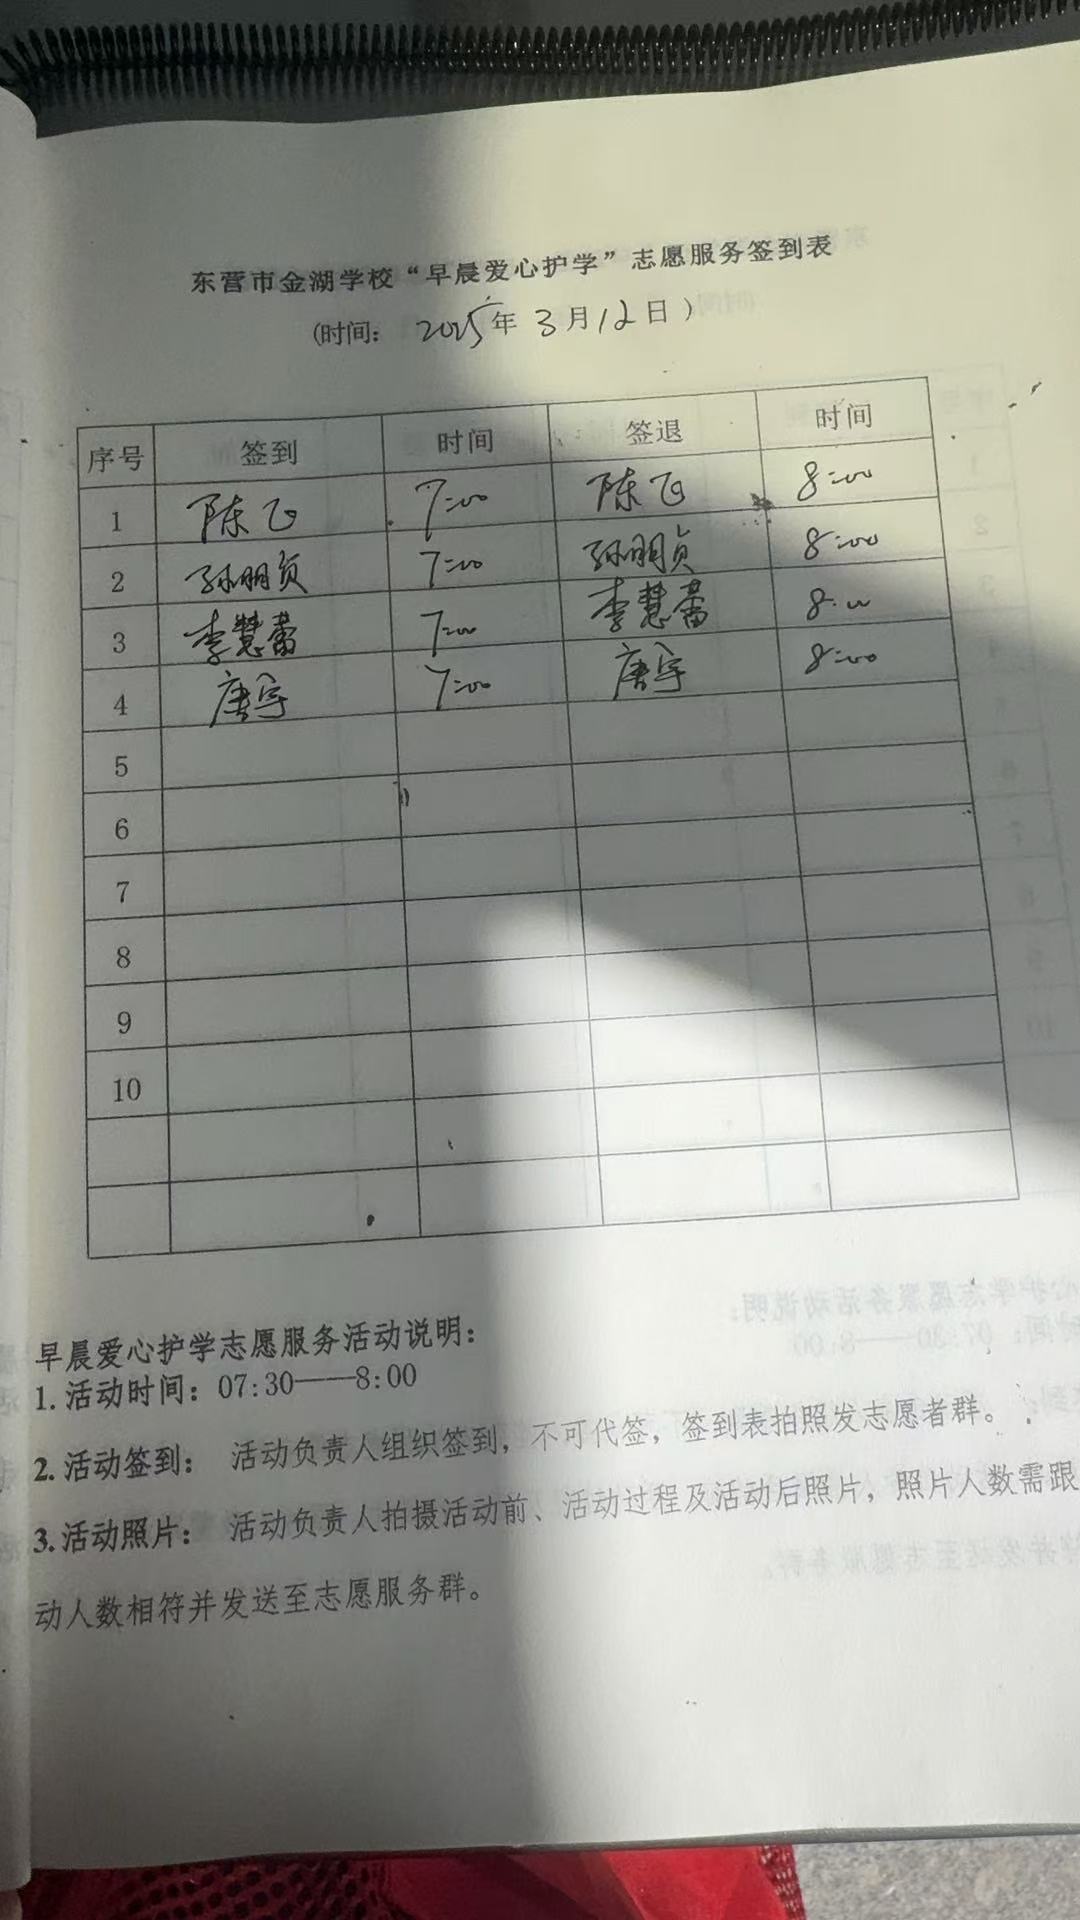 东营市金湖学校“早晨爱心护学”志愿服务签到表
(时间： 2025年 3月12日）
序号 签到 时间 签退 时间
1 陈飞 7:00 陈飞 8:00
2 孙明贞 7:00 孙明贞 8:00
3 李慧蕾 7:00 李慧蕾 8:00
4 唐宇 7:00 唐宇 8:00
5
6
7
8
9
10
早晨爱心护学志愿服务活动说明：
1.活动时间：07:30——8:00
2.活动签到： 活动负责人组织签到，不可代签，签到表拍照发志愿者群。
3.活动照片： 活动负责人拍摄活动前、活动过程及活动后照片，照片人数需跟
动人数相符并发送至志愿服务群。